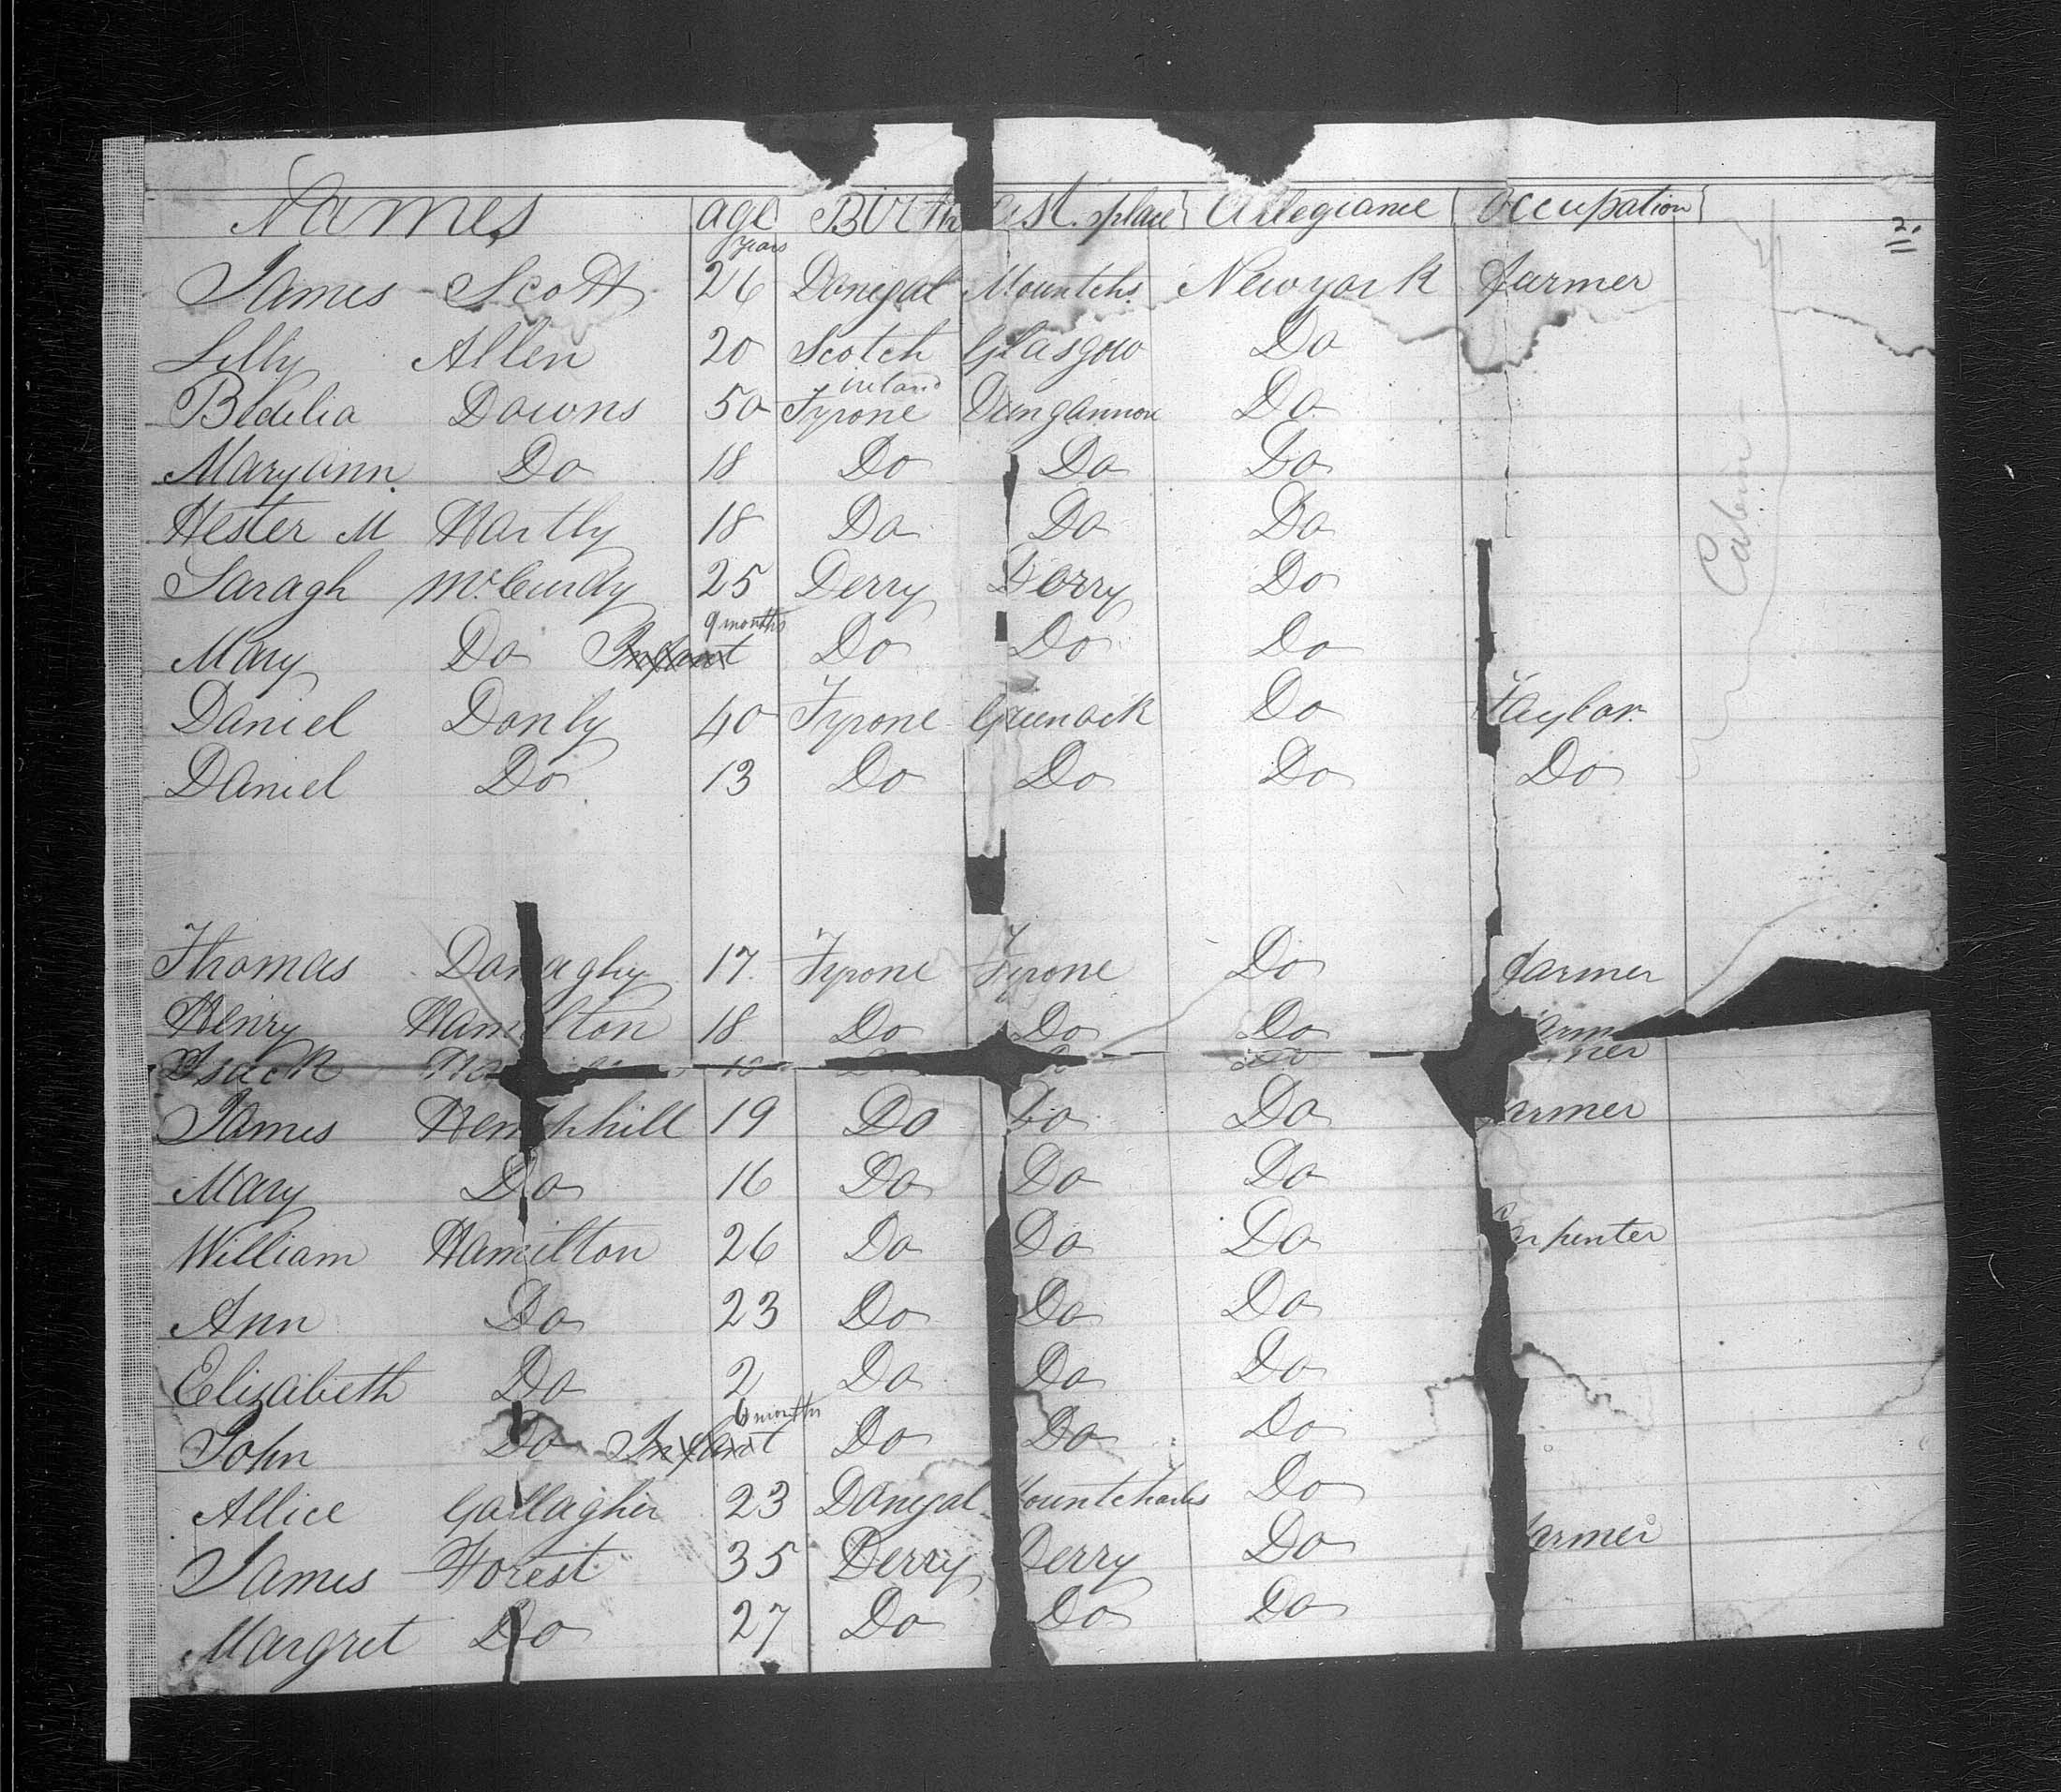 Names age Birth Last place Allegiance Occupation
years 2.
James Scott 26 Donegal Mountchs. New york farmer
Lilly Allen 20 Scotch Glasgow Do
ireland
Bedelia Downs 50 Tyrone Dungannon Do
Maryann Do 18 Do Do Do
Hester M Hartly 18 Do Do Do
Cabin
Saragh McCurdy 25 Derry Derry Do
9 months
Mary Do Infant Do Do Do
Daniel Donly 40 Tyrone Greenock Do Taylor
Daniel Do 13 Do Do Do Do
Thomas Donaghy 17 Tyrone Tyrone Do farmer
Henry Hamilton 18 Do Do Do arm
Isack Do mer
James Hemphill 19 Do Do Do armer
Mary Do 16 Do Do Do
William Hamilton 26 Do Do Do Carpenter
Ann Do 23 Do Do Do
Elizabeth Do 2 Do Do Do
6 months
John Do Infant Do Do Do
Allice Gallagher 23 Donegal ountcharles Do
James Forest 35 Derry Derry Do farmer
Margret Do 27 Do Do Do